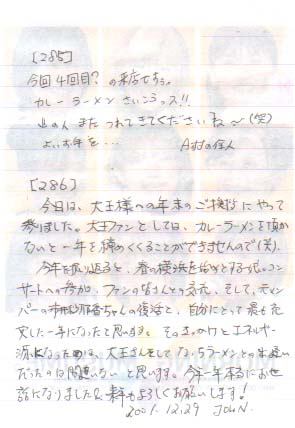 [285]
今回4回目?の来店ですぅ。
カレーラーメンさいこうッス!!
山のん またつれてきてくださいね〜(笑)
よいお年を…
A村の住人
[286]
今日は、大王様への年末のご挨拶にやって
参りました。大王ファンとしては、カレーラーメンを頂か
ないと一年を締めくくることができませんので(笑)。
今年を振り返ると、春の横浜を始めとする コン
サートへの参加、ファンの皆さんとの交流、そして、
ちゃんの復活と、自分にとって最も充
実した一年になったと思います。そのきっかけとエネルギー
源になったのは、大王さんそして ラーメンとの出逢い
だったのは間違いないと思います。今年一年本当にお世
話になりました&来年もよろしくお願いします!
2001.12.29 JOHN.